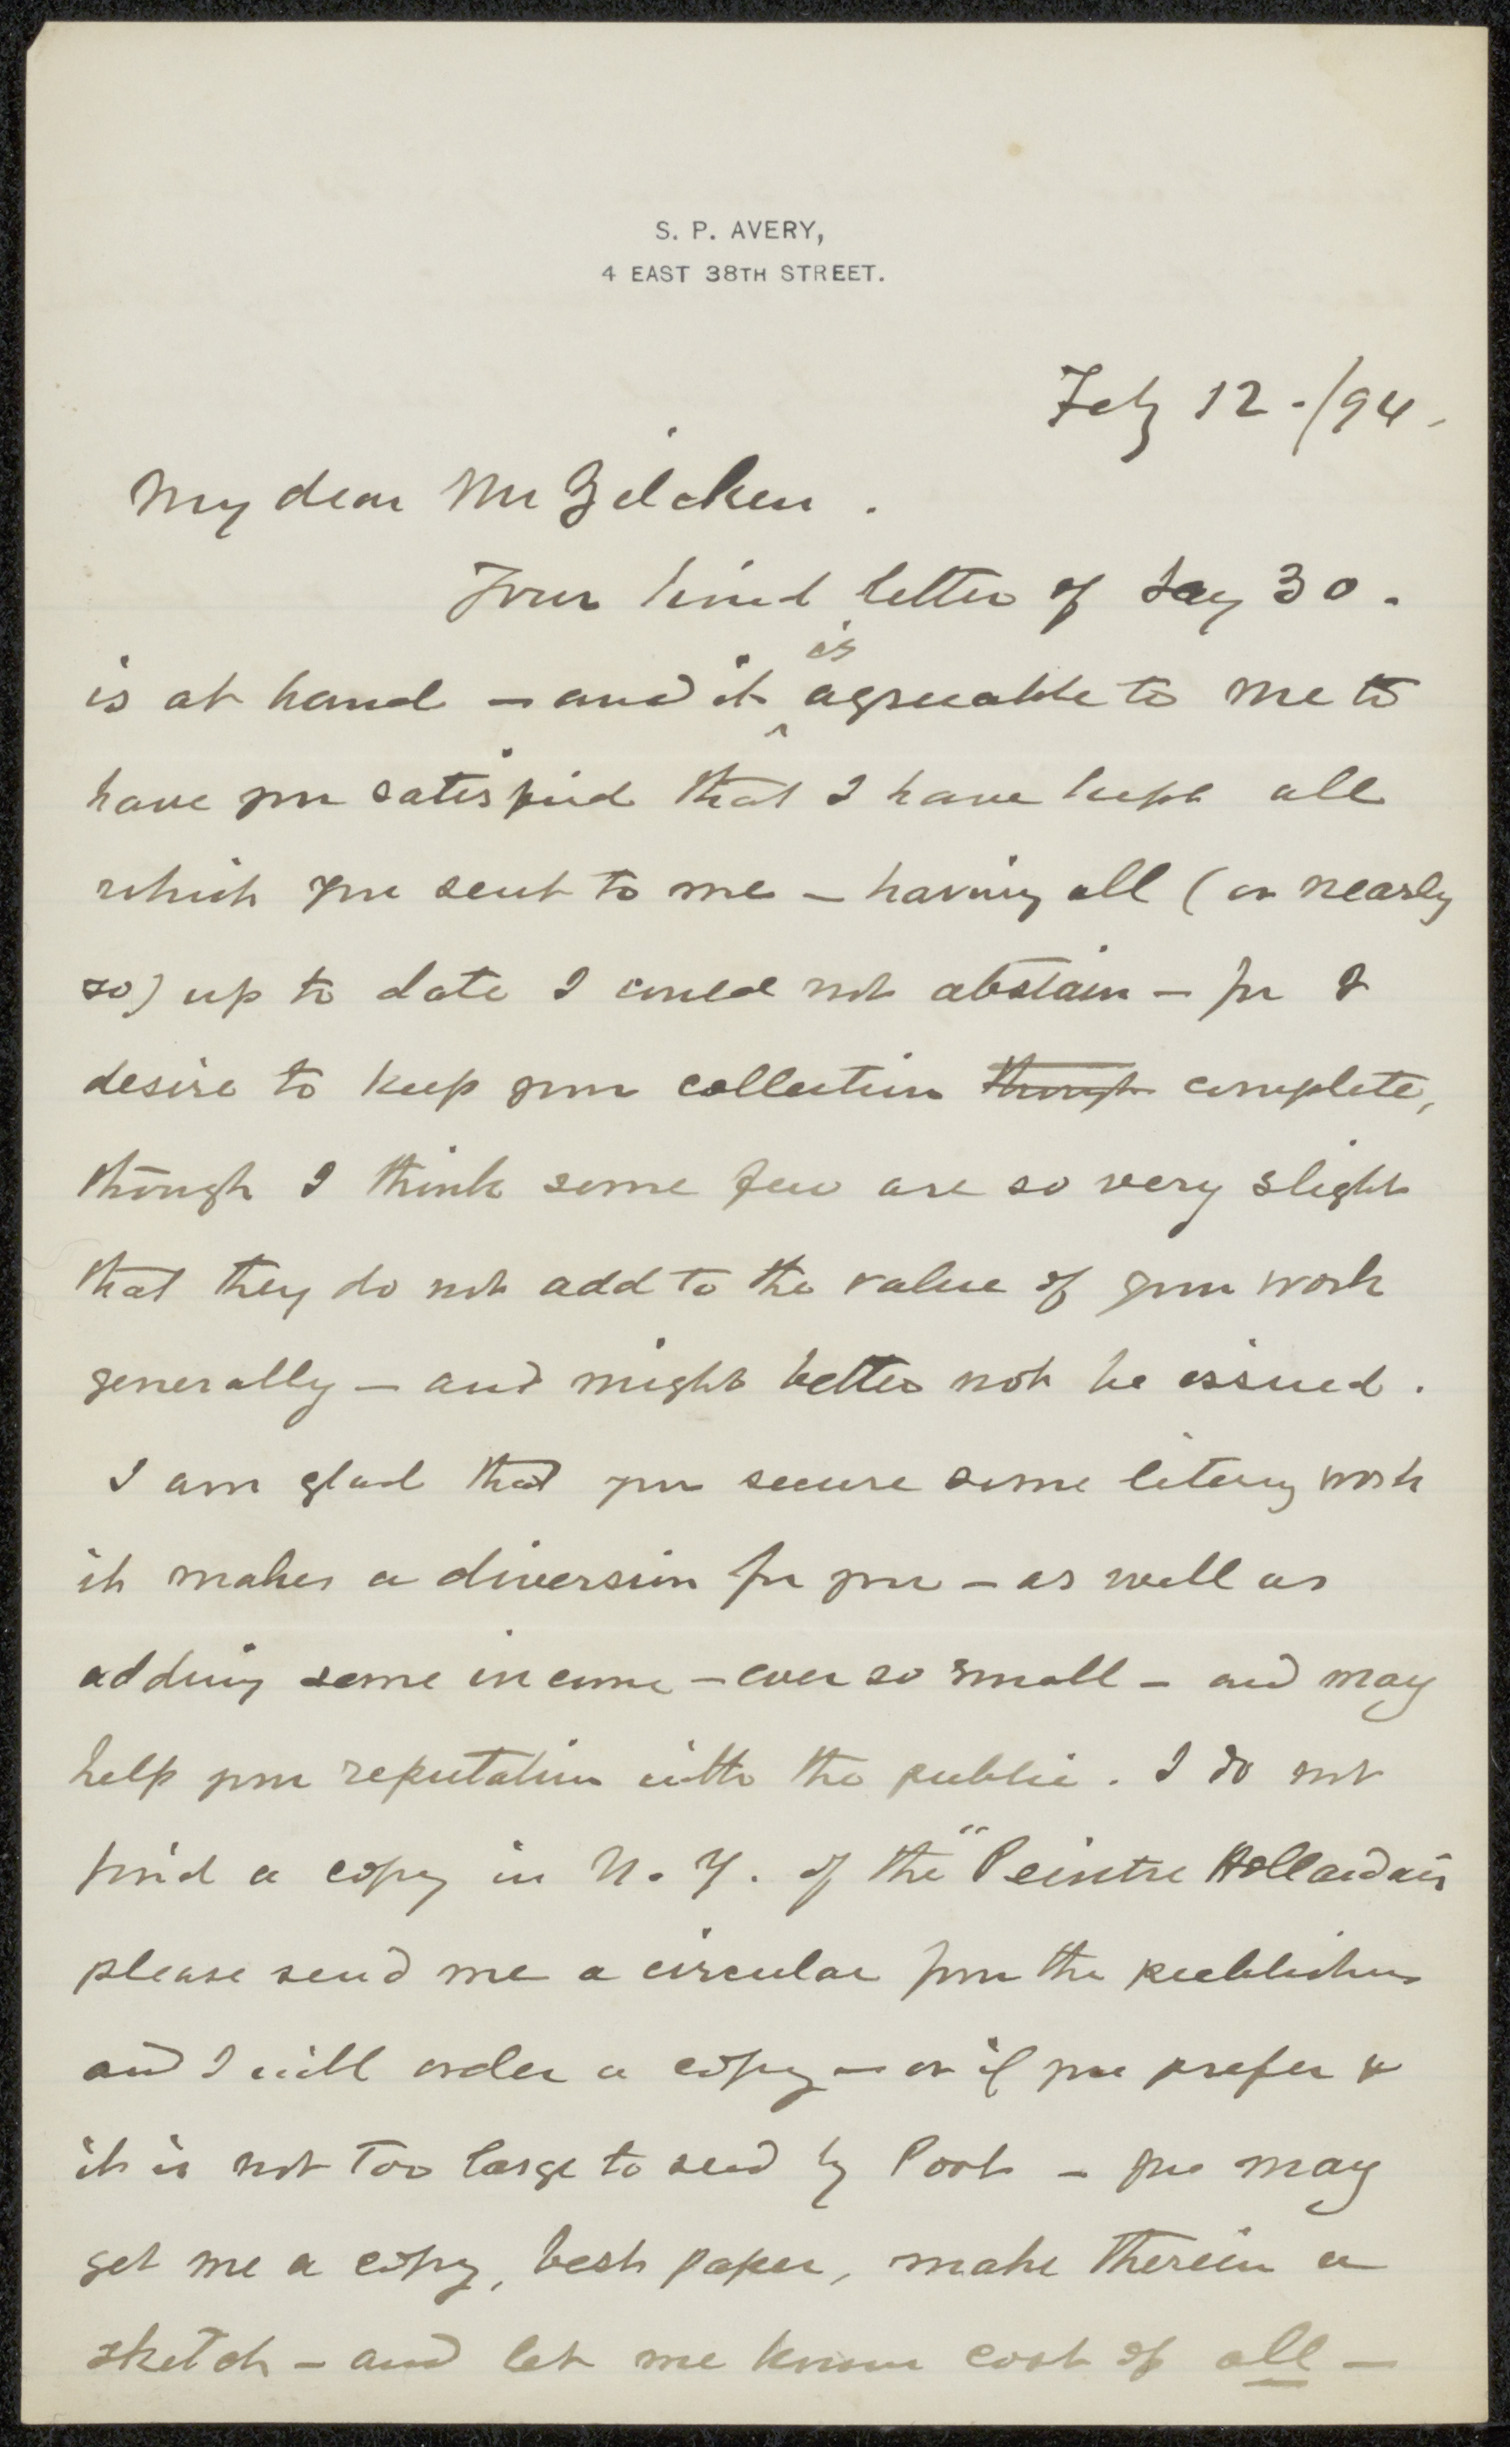 S. P. AVERY,
4 EAST 38TH STREET.
Feby 12 - /94.
My dear Mr Zilcken.
Your kind letter of Jay 30.
is at hand – and it is agreeable to me to
have you satisfied that I have kept all
which you sent to me – having all (or nearly
so) up to date I could not abstain – for I
desire to keep your collection though complete,
though I think some few are so very slight
that they do not add to the value of your work
generally – and might better not be issued.
I am glad that you secure some litery work
it makes a diversion for you – as well as
adding some income – ever so small – and may
help your reputation with the public. I do not
find a copy in N. Y. of the "Peintre Hollandais
please send me a circular from the publishers
and I will order a copy – or if you prefer &
it is not too large to send by Post – you may
get me a copy, best paper, make therein a
sketch – and let me know cost of all –